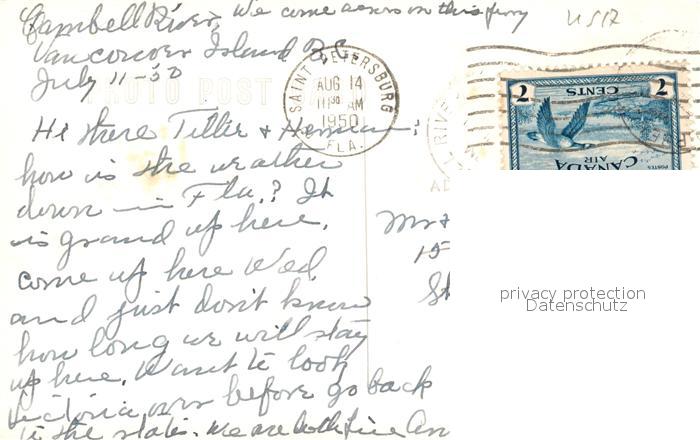 Cambell River, We come across on this ferry USA
Vancouver Island B.C.
July 11-50
PHOTO POST
SAINT PETERSBURG
AUG 14
11 30 AM
1950
FLA.
2 CENTS 2
POSTES CANADA AIR
RIVER
Hi there Tillie & Herman:
how is the weather
down in Fla.? It
is grand up here.
come up here Wed.
and just don't know
how long we will stay
up here. Want to look
Victoria over before go back
to the states. we are both fine an
Mr &
15
St
privacy protection
Datenschutz